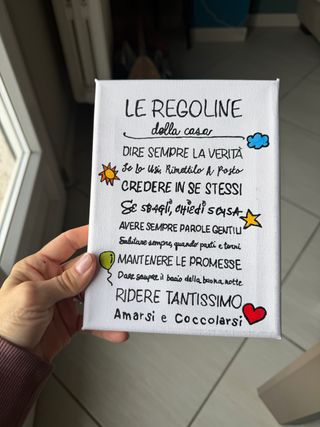 LE REGOLINE
della casa
DIRE SEMPRE LA VERITÀ
Se lo Usi, Rimettilo A Posto
CREDERE IN SE STESSI
Se sbagli, chiedi scusa
AVERE SEMPRE PAROLE GENTILI
Salutare sempre, quando parti e torni
MANTENERE LE PROMESSE
Dare sempre il bacio della buona notte
RIDERE TANTISSIMO
Amarsi e Coccolarsi